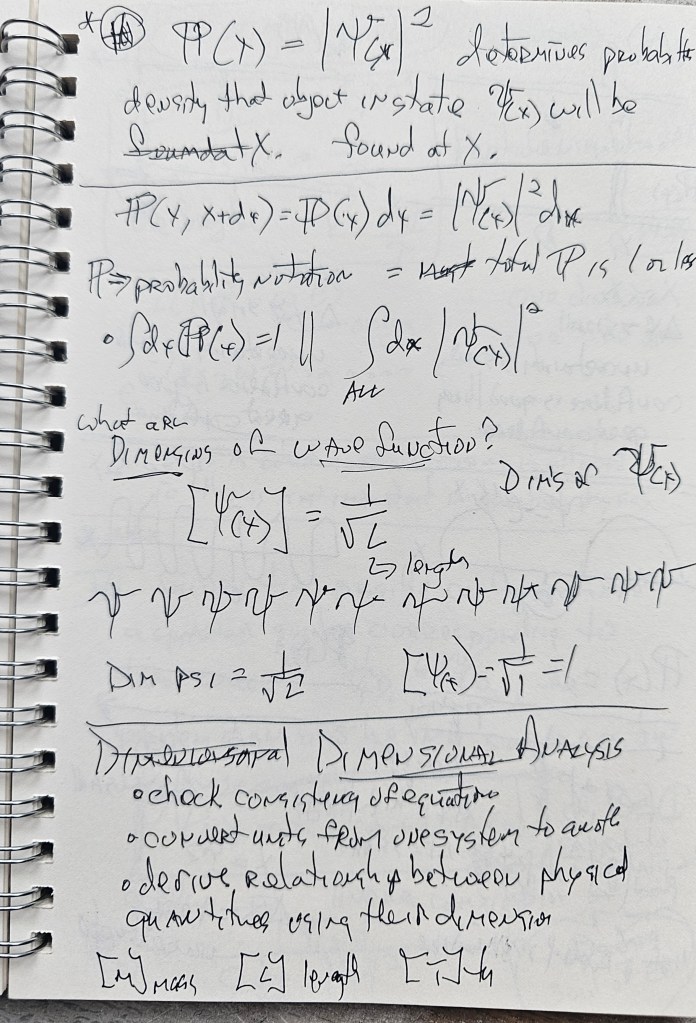 * #4 ℙ(x) = |Ψ(x)|² determines probability
density that object in state Ψ(x) will be
found at X. found at X.
ℙ(x, x+dx) = ℙ(x) dx = |Ψ(x)|² dx
ℙ → probability notation = total ℙ is 1 or less
• ∫dx ℙ(x) = 1 || ∫dx |Ψ(x)|²
ALL
What are
Dimensins of wave function?
Dim's of Ψ(x)
[Ψ(x)] = 1/√L
↳ length
Ψ Ψ Ψ Ψ Ψ Ψ Ψ Ψ Ψ Ψ Ψ Ψ
Dim psi = 1/√L [Ψ(x)) = 1/√1 = 1
Dimensional Analysis
• check consistency of equation
• convert units from one system to anoth
• derive relationship between physical
quantitues using their dimension
[M] mass [L] length [T]